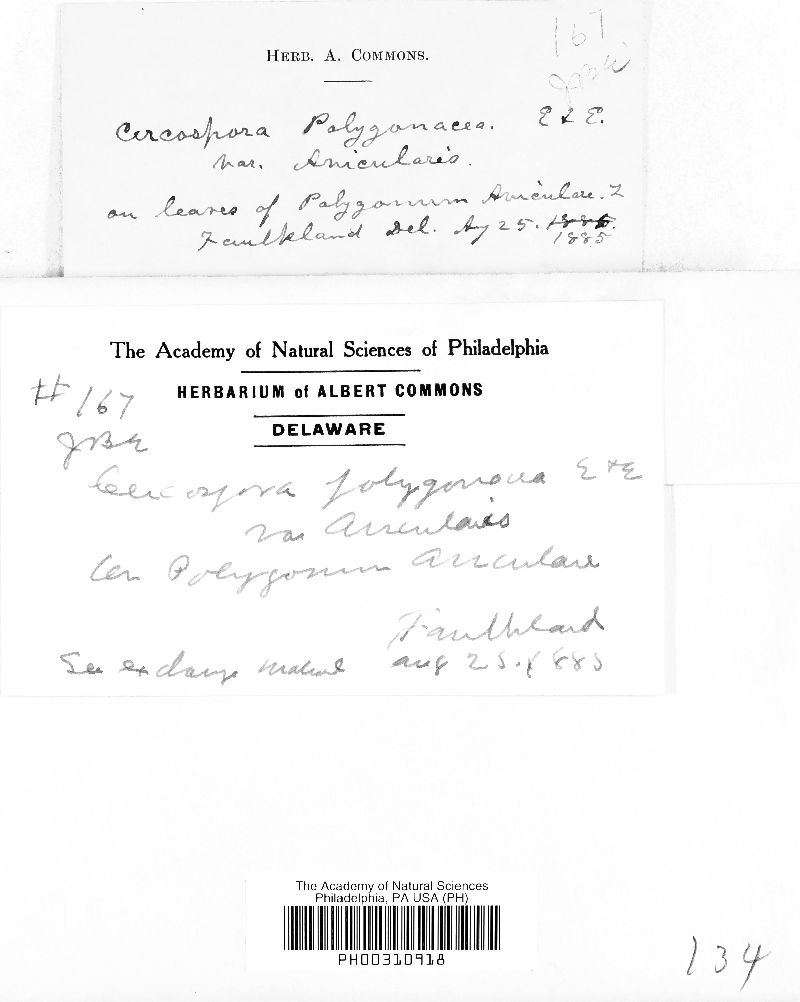 167
JBE
HERB. A. COMMONS.
Cercospora Polygonacea. E & E.
var. Avicularis.
on leaves of Polygonum Aviculare. L
Faulkland Del. Ag 25. 1886.
1885
The Academy of Natural Sciences of Philadelphia
HERBARIUM of ALBERT COMMONS
DELAWARE
# 167
JBE
Cercospora polygonacea E & E
var Avicularis
on Polygonum Aviculare
Faulkland
See exchange material aug 25. 1885
The Academy of Natural Sciences
Philadelphia, PA USA (PH)
PH00310918
134